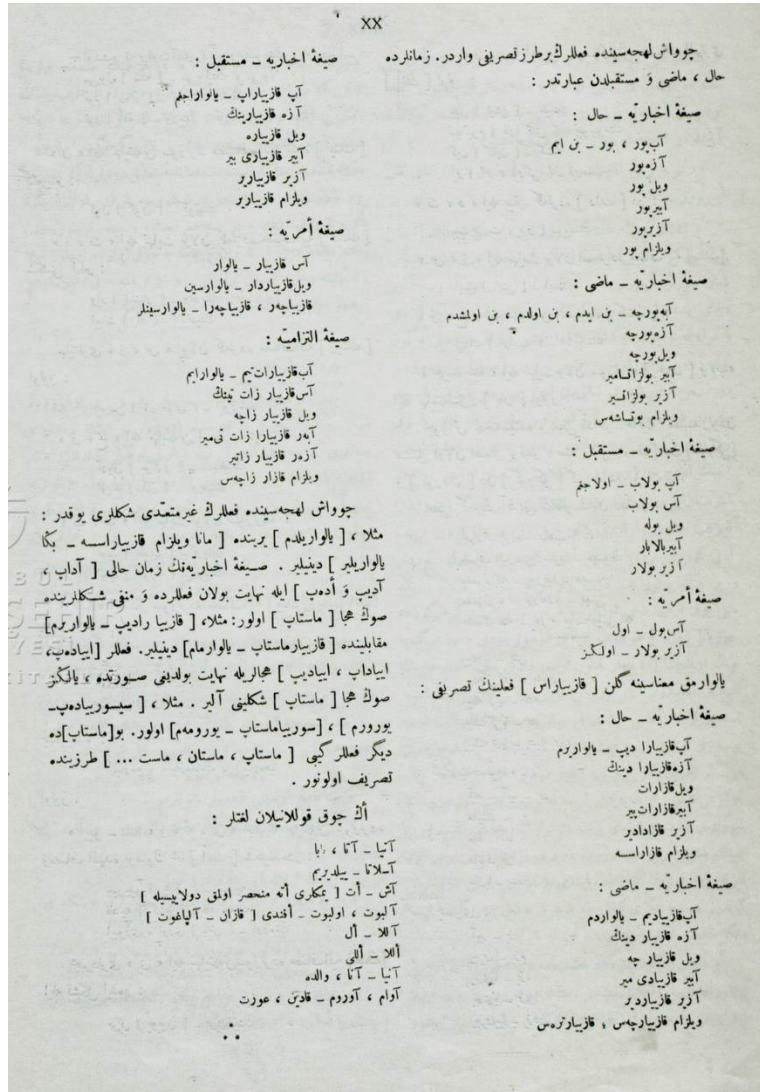 XX
چوواش لهجه‌سینده فعللرڭ بر طرز تصریفی واردر. زمانلرده
حال ، ماضی وَ مستقبلدن عبارتدر :
صیغهٔ اخباریّه ـ حال :
آپ‌پور ، بور ـ بن ایم
آزه‌پور
ویل پور
آبیرپور
آزیرپور
ویلزام پور
صیغهٔ اخباریّه ـ ماضی :
آپه‌پورچه ـ بن ایدم ، بن اولدم ، بن اولمشدم
آزه‌پورچه
ویل‌پورچه
آبیر بولزاتسامیر
آزیر بولزاتسیر
ویلزام بوتساشه‌س
صیغهٔ اخباریّه ـ مستقبل :
آپ بولاب ـ اولاجغم
آس بولاب
ویل بوله
آبیربالابار
آزیر بولار
صیغهٔ أمریّه :
آس‌بول ـ اول
آزیر بولار ـ اولكز
یالوارمق معناسینه گلن [ قازیباراس ] فعلینڭ تصریفی :
صیغهٔ اخباریّه ـ حال :
آپ‌قازیبارا دیپ ـ یالواریرم
آزه‌قازیبارا دینڭ
ویل‌قازارات
آبیرقازارات‌پیر
آزیر قازادادیر
ویلزام قازاراسسه
صیغهٔ اخباریّه ـ ماضی :
آپ‌قازیبادیم ـ یالواردم
آزه قازیبار دینڭ
ویل قازیبار چه
آبیر قازیبادی میر
آزیر قازیباردیر
ویلزام قازیبارچه‌س ، قازیبارتره‌س
صیغهٔ اخباریه ـ مستقبل :
آپ قازیباراپ ـ یالواراجغم
آزه قازیبارینڭ
ویل قازیباره
آبیر قازیباری بیر
آزیر قازیباریر
ویلزام قازیباریر
صیغهٔ أمریّه :
آس قازیبار ـ یالوار
ویل‌قازیباردار ـ یالوارسین
قازیباچه‌ر ، قازیباچه‌را ـ یالوارسینلر
صیغهٔ التزامیّه :
آپ‌قازیبارات‌تیم ـ یالوارایم
آس‌قازیبار زات تینڭ
ویل قازیبار زاچه
آبه‌ر قازیبارا زات تی‌میر
آزه‌ر قازیبار زاتیر
ویلزام قازار زاچه‌س
چوواش لهجه‌سینده فعللرڭ غیرمتعدّی شكللری یوقدر :
مثلا ، [ یالواریلدم ] یرینده [ مانا ویلزام قازیباراسسه ـ بكا
یالواریلیر ] دینیلیر . صیغهٔ اخباریّه‌نڭ زمان حالی [ آداب ،
آدیب وَ أده‌ب ] ایله نهایت بولان فعللرده وَ منفی شكللرینده
صوڭ هجا [ ماستاپ ] اولور: مثلا، [ قازیبا رادیپ ـ یالواریرم]
مقابلینده [ قازیبارماستاب ـ یالوارمام] دینیلیر. فعللر [ایباده‌پ،
ایباداب ، ایبادیب ] هجالریله نهایت بولدیغی صورتده ، یالڭز
صوڭ هجا [ ماستاب ] شكلینی آلیر . مثلا ، [ سیسورییاده‌پ ـ
یورورم ] ، [سورییاماستاب ـ یورومه‌م] اولور. بو[ماستاب]ده
دیگر فعللر گیبی [ ماستاپ ، ماستان ، ماست ... ] طرزینده
تصریف اولونور .
أڭ چوق قوللانیلان لغتلر :
آتیا ـ آتا ، بابا
آسلاتا ـ ییلدیریم
آش ـ أت [ یمكلری أته منحصر اولمق دولاییسیله ]
آلبوت ، اولبوت ـ أفندی [ قازان ـ آلپاغوت ]
آللا ـ أل
أللا ـ أللی
آنیا ـ آنا ، والده
آوام ، آوروم ـ قادین ، عورت